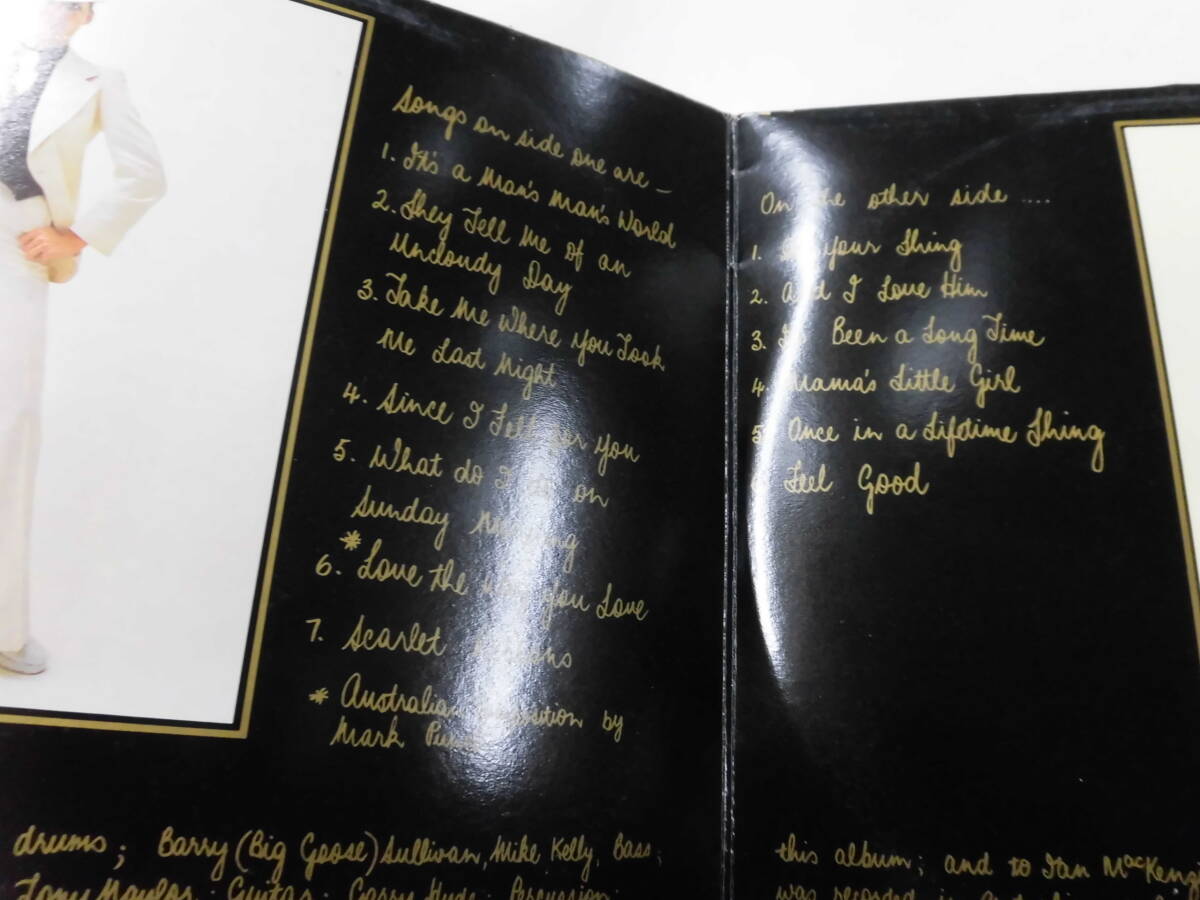 Songs on side one are –
1. It's a Man's Man's World
2. They Tell Me of an
Uncloudy Day
3. Take Me Where You Took
Me Last Night
4. Since I Fell for You
5. What do I do on
Sunday Morning
*
6. Love the way you Love
7. Scarlet Ribbons
* Australian composition by
Mark
drums; Barry (Big Goose) Sullivan, Mike Kelly, Bass;
Tony Naylor, Guitar; Garry Hyde, Percussion;
On the other side ....
1. It's Your Thing
2. And I Love Him
3. It's Been a Long Time
4. Mama's Little Girl
5. Once in a Lifetime Thing
Feel Good
this album; and to Ian MacKenzie
was recorded